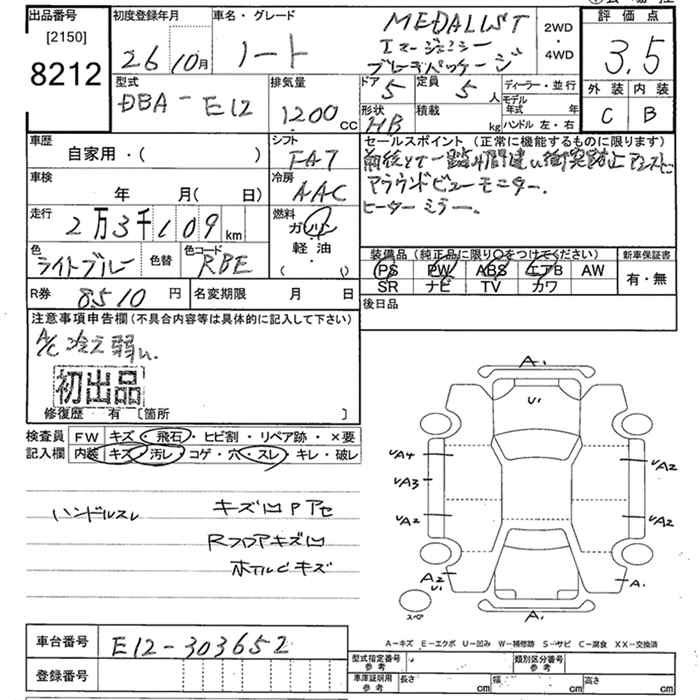 出品番号
[2150]
8212
初度登録年月
26 10月
車名・グレード
ノート
MEDALIST
エマージェンシー
ブレーキパッケージ
2WD
4WD
評価点
3.5
外装 内装
C B
型式
DBA-E12
排気量
1200 cc
ドア 5
定員 5 人
形状 HB
積載 kg
ディーラー・並行
モデル年式 年
ハンドル 左・右
車歴
自家用・( )
シフト
FAT
車検
年 月( 日)
冷房
AAC
走行
2万3千109km
燃料
ガソリン
軽油
( ・ )
色
ライトブルー
色替
色コード
RBE
R券
8510円
名変期限 月 日
セールスポイント(正常に機能するものに限ります)
アラウンドビューモニター.
ヒーターミラー.
装備品(純正品に限り○をつけてください)
PS PW ABS エアB AW
SR ナビ TV カワ
新車保証書
有・無
後日品
注意事項申告欄(不具合内容等は具体的に記入して下さい)
A/C冷え弱い.
初出品
修復歴 有 〔箇所 〕
検査員
記入欄
FW キズ・飛石・ヒビ割・リペア跡・×要
内装 キズ・汚レ・コゲ・穴・スレ・キレ・破レ
ハンドルスレ
キズ凹Pアセ
Rフロアキズ凹
ホイルCキズ
A1
U1
UA4
UA3
UA2
UA2
UA2
A2
U1
A1
A1
スペア
A-キズ E-エクボ U-凹み W-補修跡 S-サビ C-腐食 XX-交換済
車台番号
E12-303652
登録番号
型式指定番号 参考
類別区分番号 参考
車庫証明用 参考
長さ cm
幅 cm
高さ cm